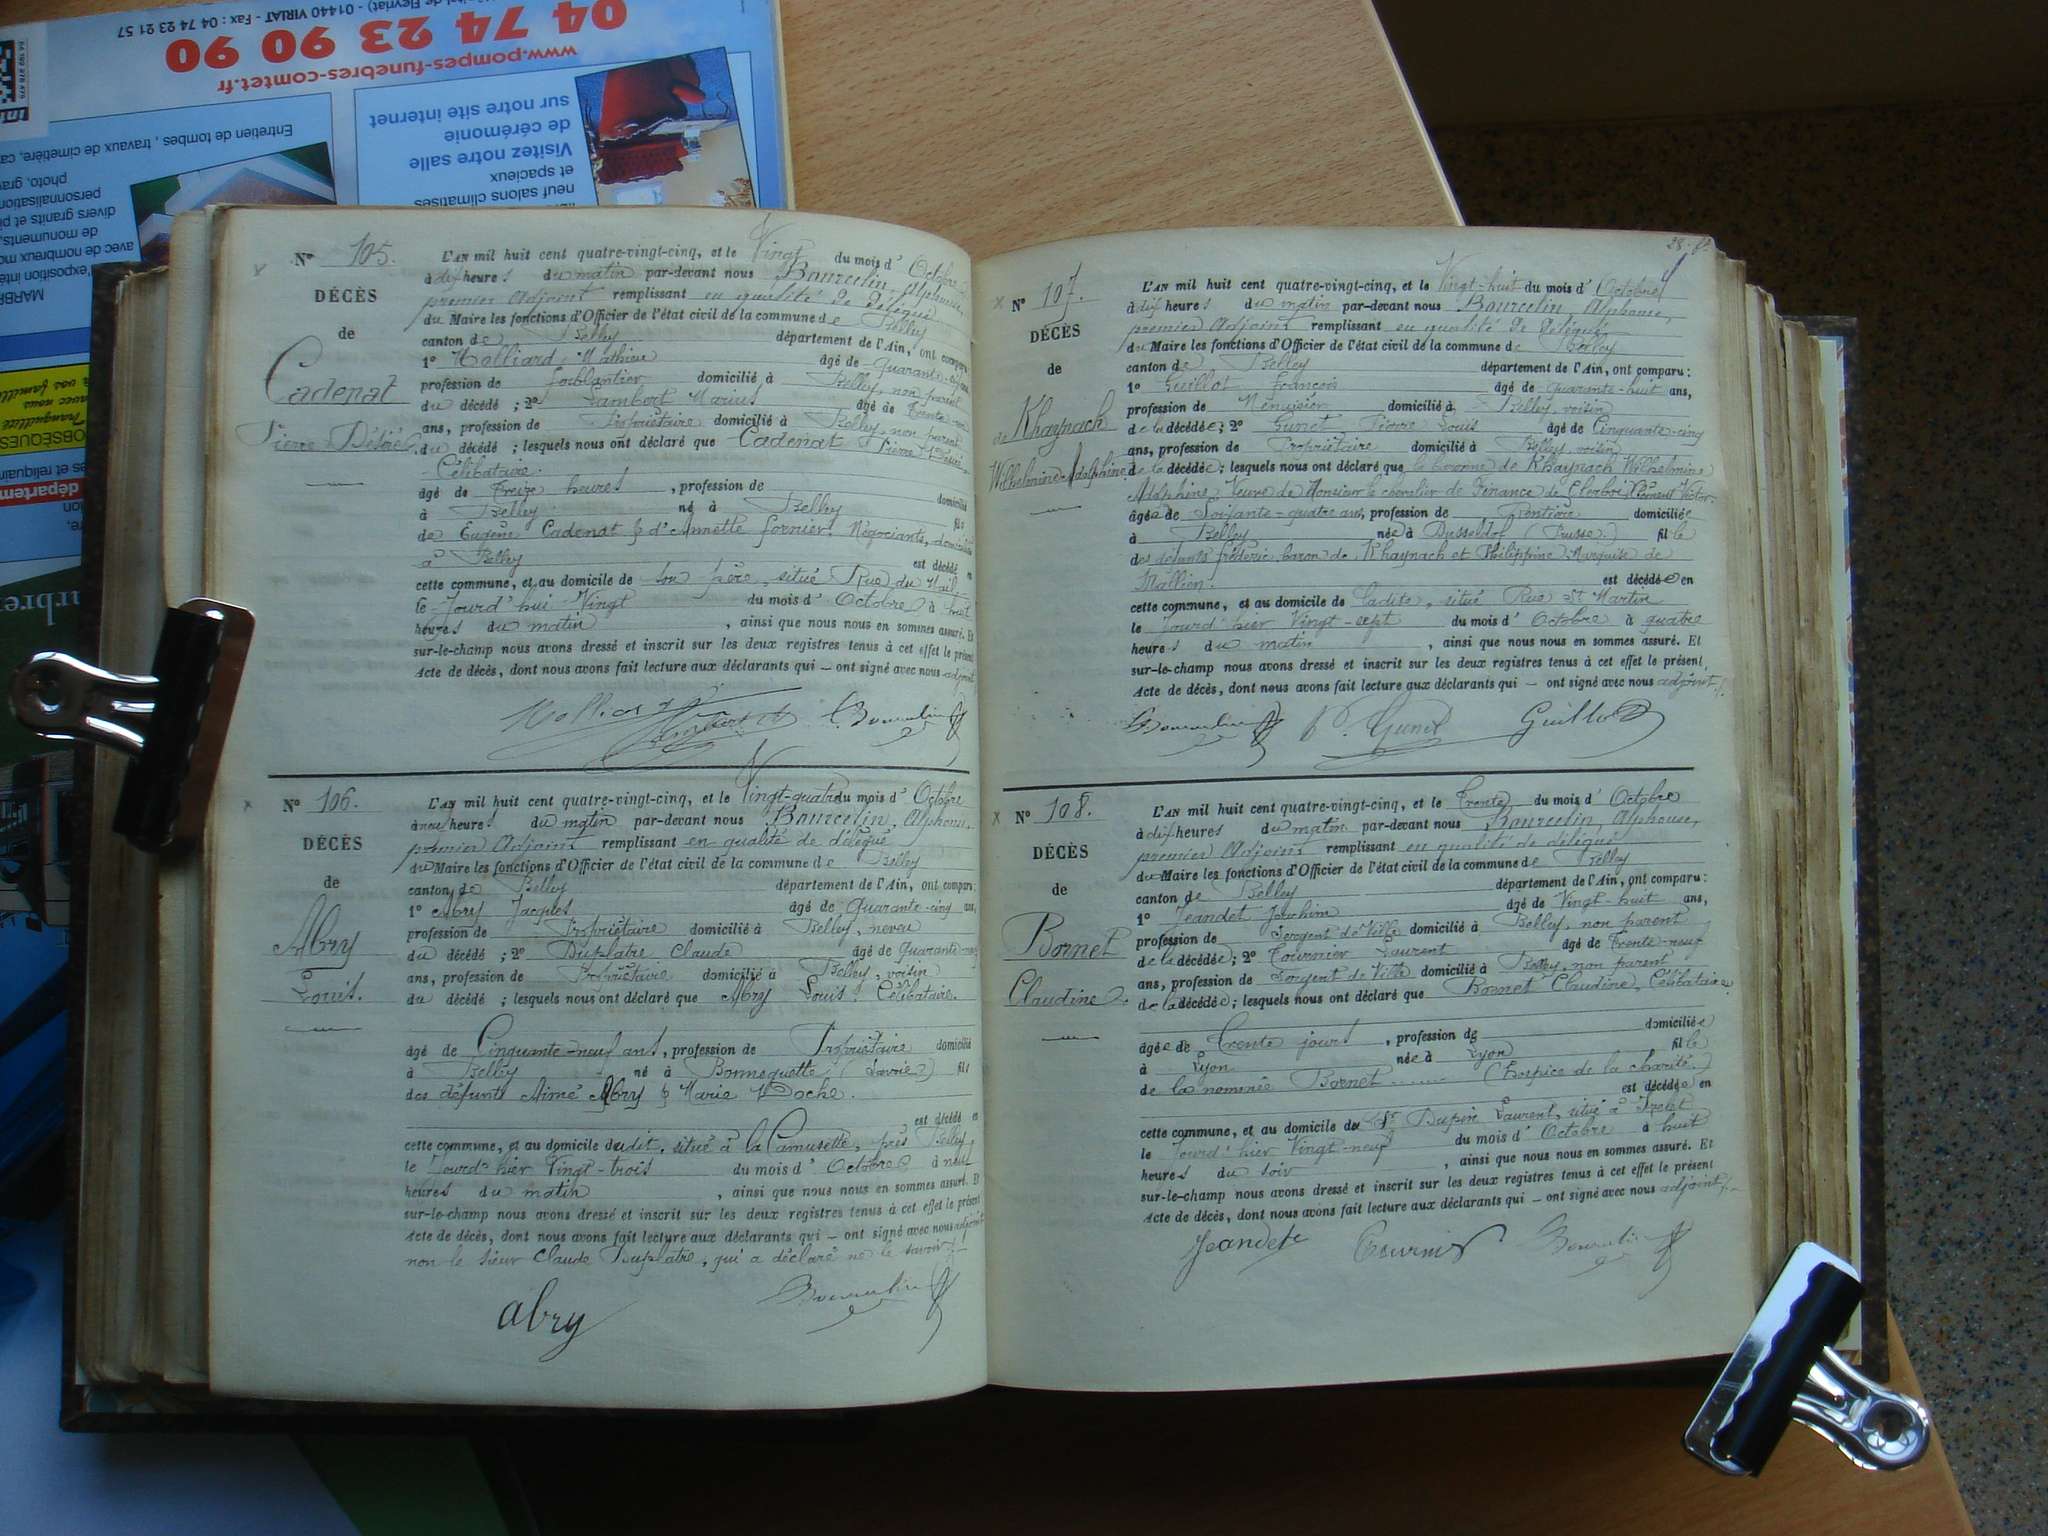 04 74 23 90 90
www.pompes-funebres-comtet.fr
01440 VIRIAT - Fax : 04 74 23 21 57
Entretien de tombes, travaux de cimetière,
Visitez notre salle
de cérémonie
sur notre site internet
neuf salons climatisés
et spacieux
avec de nombreux
de monuments,
divers granits et
personnalisation
photo,
N° 105.
DÉCÈS
de
Cadenat
Pierre Désiré.
L'AN mil huit cent quatre-vingt-cinq, et le Vingt du mois d'Octobre
à dix heures du matin par-devant nous Bourcelin, Alphonse,
premier Adjoint remplissant en qualité de délégué
du Maire les fonctions d'Officier de l'état civil de la commune de Belley
canton de Belley département de l'Ain, ont comparu
1° Molliard Mathieu âgé de Quarante
profession de ferblantier domicilié à Belley, non parent
du décédé ; 2° Lambert Marius âgé de Trente
ans, profession de Propriétaire domicilié à Belley, non parent
du décédé ; lesquels nous ont déclaré que Cadenat Pierre Désiré,
Célibataire.
âgé de Treize heures, profession de domicilié
à Belley né à Belley fils
de Eugène Cadenat & d'Annette fornier. Négociants, domiciliés
à Belley est décédé en
cette commune, et au domicile de son père, situé Rue du Mail,
le Jourd'hui Vingt du mois d'Octobre à huit
heures du matin, ainsi que nous nous en sommes assuré. Et
sur-le-champ nous avons dressé et inscrit sur les deux registres tenus à cet effet le présent
Acte de décès, dont nous avons fait lecture aux déclarants qui — ont signé avec nous adjoint
N° 106.
DÉCÈS
de
Abry
Louis.
L'AN mil huit cent quatre-vingt-cinq, et le Vingt-quatre du mois d'Octobre
à neuf heures du matin par-devant nous Bourcelin, Alphonse,
premier Adjoint remplissant en qualité de délégué
du Maire les fonctions d'Officier de l'état civil de la commune de Belley
canton de Belley département de l'Ain, ont comparu :
1° Abry Jacques âgé de Quarante-cinq ans,
profession de Propriétaire domicilié à Belley, neveu
du décédé ; 2° Duplatre Claude âgé de Quarante
ans, profession de Propriétaire domicilié à Belley, voisin
du décédé ; lesquels nous ont déclaré que Abry Louis. Célibataire.
âgé de Cinquante-neuf ans, profession de Propriétaire domicilié
à Belley né à (Savoie) fils
des défunts Aimé Abry & Marie Doche.
est décédé en
cette commune, et au domicile dudit, situé à la Camusette, près Belley
le Jourd'hier Vingt-trois du mois d'Octobre à neuf
heures du matin, ainsi que nous nous en sommes assuré. Et
sur-le-champ nous avons dressé et inscrit sur les deux registres tenus à cet effet le présent
Acte de décès, dont nous avons fait lecture aux déclarants qui — ont signé avec nous adjoint
non le sieur Claude Duplatre, qui a déclaré ne le savoir
abry
N° 107.
DÉCÈS
de
de Khaynach
Wilhelmine Adolphine
L'AN mil huit cent quatre-vingt-cinq, et le Vingt-huit du mois d'Octobre
à dix heures du matin par-devant nous Bourcelin Alphonse,
premier Adjoint remplissant en qualité de délégué
du Maire les fonctions d'Officier de l'état civil de la commune de Belley
canton de Belley département de l'Ain, ont comparu :
1° Guillot François âgé de Quarante-huit ans,
profession de Menuisier domicilié à Belley, voisin
de la décédée ; 2° Gunet, Pierre Louis âgé de Cinquante-cinq
ans, profession de Propriétaire domicilié à Belley, voisin
de la décédée ; lesquels nous ont déclaré que la baronne de Khaynach Wilhelmine
Adolphine, Veuve de Monsieur le chevalier de Finance de Clerboi, Clément Victor.
âgée de Soixante-quatre ans, profession de Rentière domiciliée
à Belley née à Dusseldof (Prusse) fille
des défunts frédéric baron de Khaynach et Philippine Marquise de
est décédée en
cette commune, et au domicile de ladite, situé Rue St Martin
le Jourd'hier Vingt-sept du mois d'Octobre à quatre
heures du matin, ainsi que nous nous en sommes assuré. Et
sur-le-champ nous avons dressé et inscrit sur les deux registres tenus à cet effet le présent
Acte de décès, dont nous avons fait lecture aux déclarants qui — ont signé avec nous adjoint
P. Gunet Guillot
N° 108.
DÉCÈS
de
Bornet
Claudine.
L'AN mil huit cent quatre-vingt-cinq, et le Trente du mois d'Octobre
à dix heures du matin par-devant nous Bourcelin, Alphonse,
premier Adjoint remplissant en qualité de délégué
du Maire les fonctions d'Officier de l'état civil de la commune de Belley
canton de Belley département de l'Ain, ont comparu :
1° Jeandet Joachim âgé de Vingt-huit ans,
profession de Sergent de Ville domicilié à Belley, non parent
de la décédée ; 2° Tournier Laurent âgé de Trente-neuf
ans, profession de Sergent de Ville domicilié à Belley, non parent
de la décédée ; lesquels nous ont déclaré que Bornet Claudine, Célibataire
âgée de Trente jours, profession de domiciliée
à Lyon née à Lyon fille
de la nommée Bornet (hospice de la charité.)
est décédée en
cette commune, et au domicile du Sr Dupin Laurent, situé à
le Jourd'hier Vingt-neuf du mois d'Octobre à huit
heures du soir, ainsi que nous nous en sommes assuré. Et
sur-le-champ nous avons dressé et inscrit sur les deux registres tenus à cet effet le présent
Acte de décès, dont nous avons fait lecture aux déclarants qui — ont signé avec nous adjoint
Jeandet Tournier